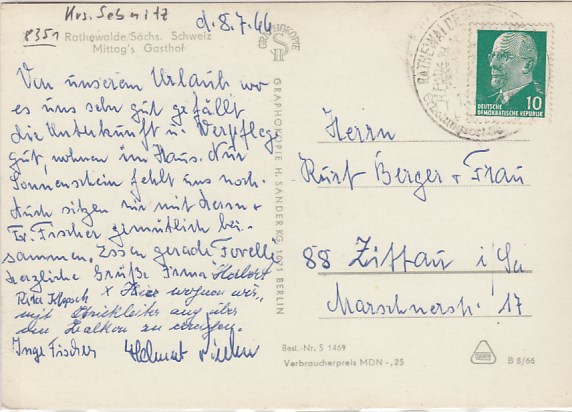 Krs. Sebnitz
8351
d. 8.7.66
Rathewalde/Sächs. Schweiz
Mittag's Gasthof
Von unserem Urlaub wo
es uns sehr gut gefällt
die Unterkunft u. Verpflege
gut, wohnen im Haus. Nur
Sonnenschein fehlt uns noch.
Auch sitzen wir mit Herrn u
Fr. Fischer gemütlich bei-
sammen. Essen gerade Forelle
herzliche Grüße Irma Herbert
Rita x Hier wohnen wir,
mit Strickleiter auf
den Balkon zu
Inge Fischer Helmut
GRAPHOKOPIE
SH
GRAPHOKOPIE H. SANDER KG, 1071 BERLIN
RATHEWALDE
DEUTSCHE
DEMOKRATISCHE REPUBLIK
10
Herrn
Kurt Berger + Frau
88 Zittau i/Sa
Marschnerstr. 17
Best.-Nr. S 1469
Verbraucherpreis MDN -,25
B 8/66